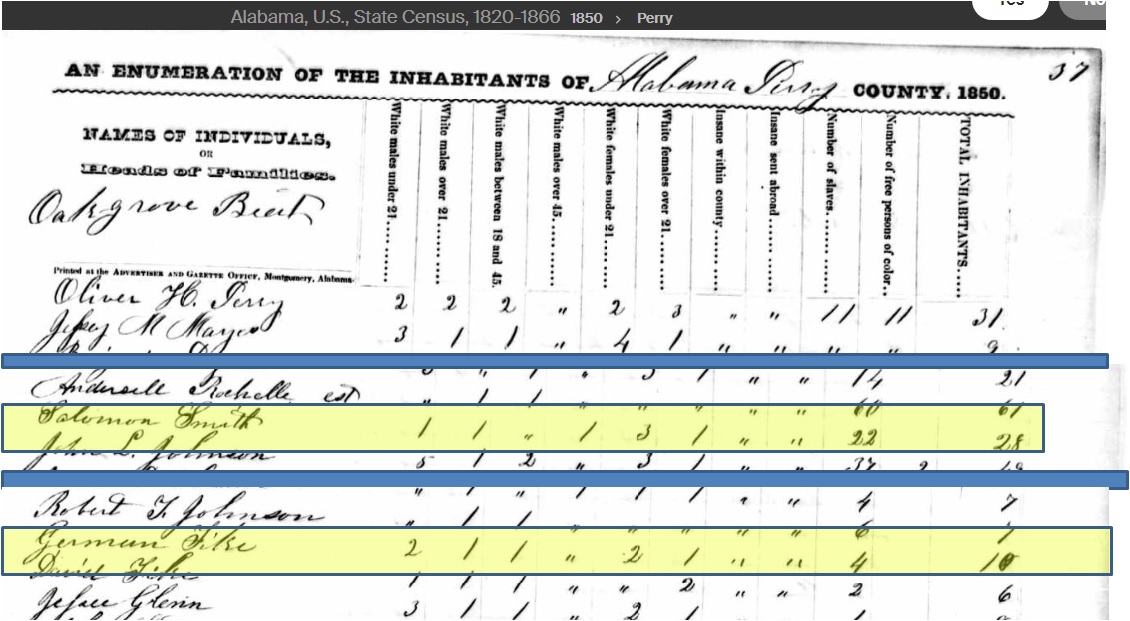 Yes No
Alabama, U.S., State Census, 1820-1866 1850 › Perry
37
AN ENUMERATION OF THE INHABITANTS OF Alabama Perry COUNTY, 1850.
NAMES OF INDIVIDUALS,
OR
Heads of Families.
Oakgrove Beat
Printed at the ADVERTISER AND GAZETTE OFFICE, Montgomery, Alabama.
White males under 21.......
White males over 21.......
White males between 18 and 45.
White males over 45.......
White females under 21......
White females over 21.......
Insane within county.......
Insane sent abroad........
Number of slaves.......
Number of free persons of color..
TOTAL INHABITANTS....
Oliver H. Perry 2 2 2 " 2 3 " " 11 11 31
Jessey M Mayes 3 1 1 " 4 1 " " " " 9
" 1 " 3 1 " " 14 21
Rochelle est " 1 1 " " " " " 60 61
Salomon Smith 1 1 " 1 3 1 " " 22 28
John L. Johnson 5 1 2 " 3 1 " "
" 1 " 1 1 1 " " 4 7
Robert F Johnson " 1 1 " " " " " 6 7
German Fike 2 1 1 " 2 1 " " 4 10
David Fike 1 1 1 " " 2 " " 2 6
Jessee Glenn 3 1 1 " 2 1 " " 1